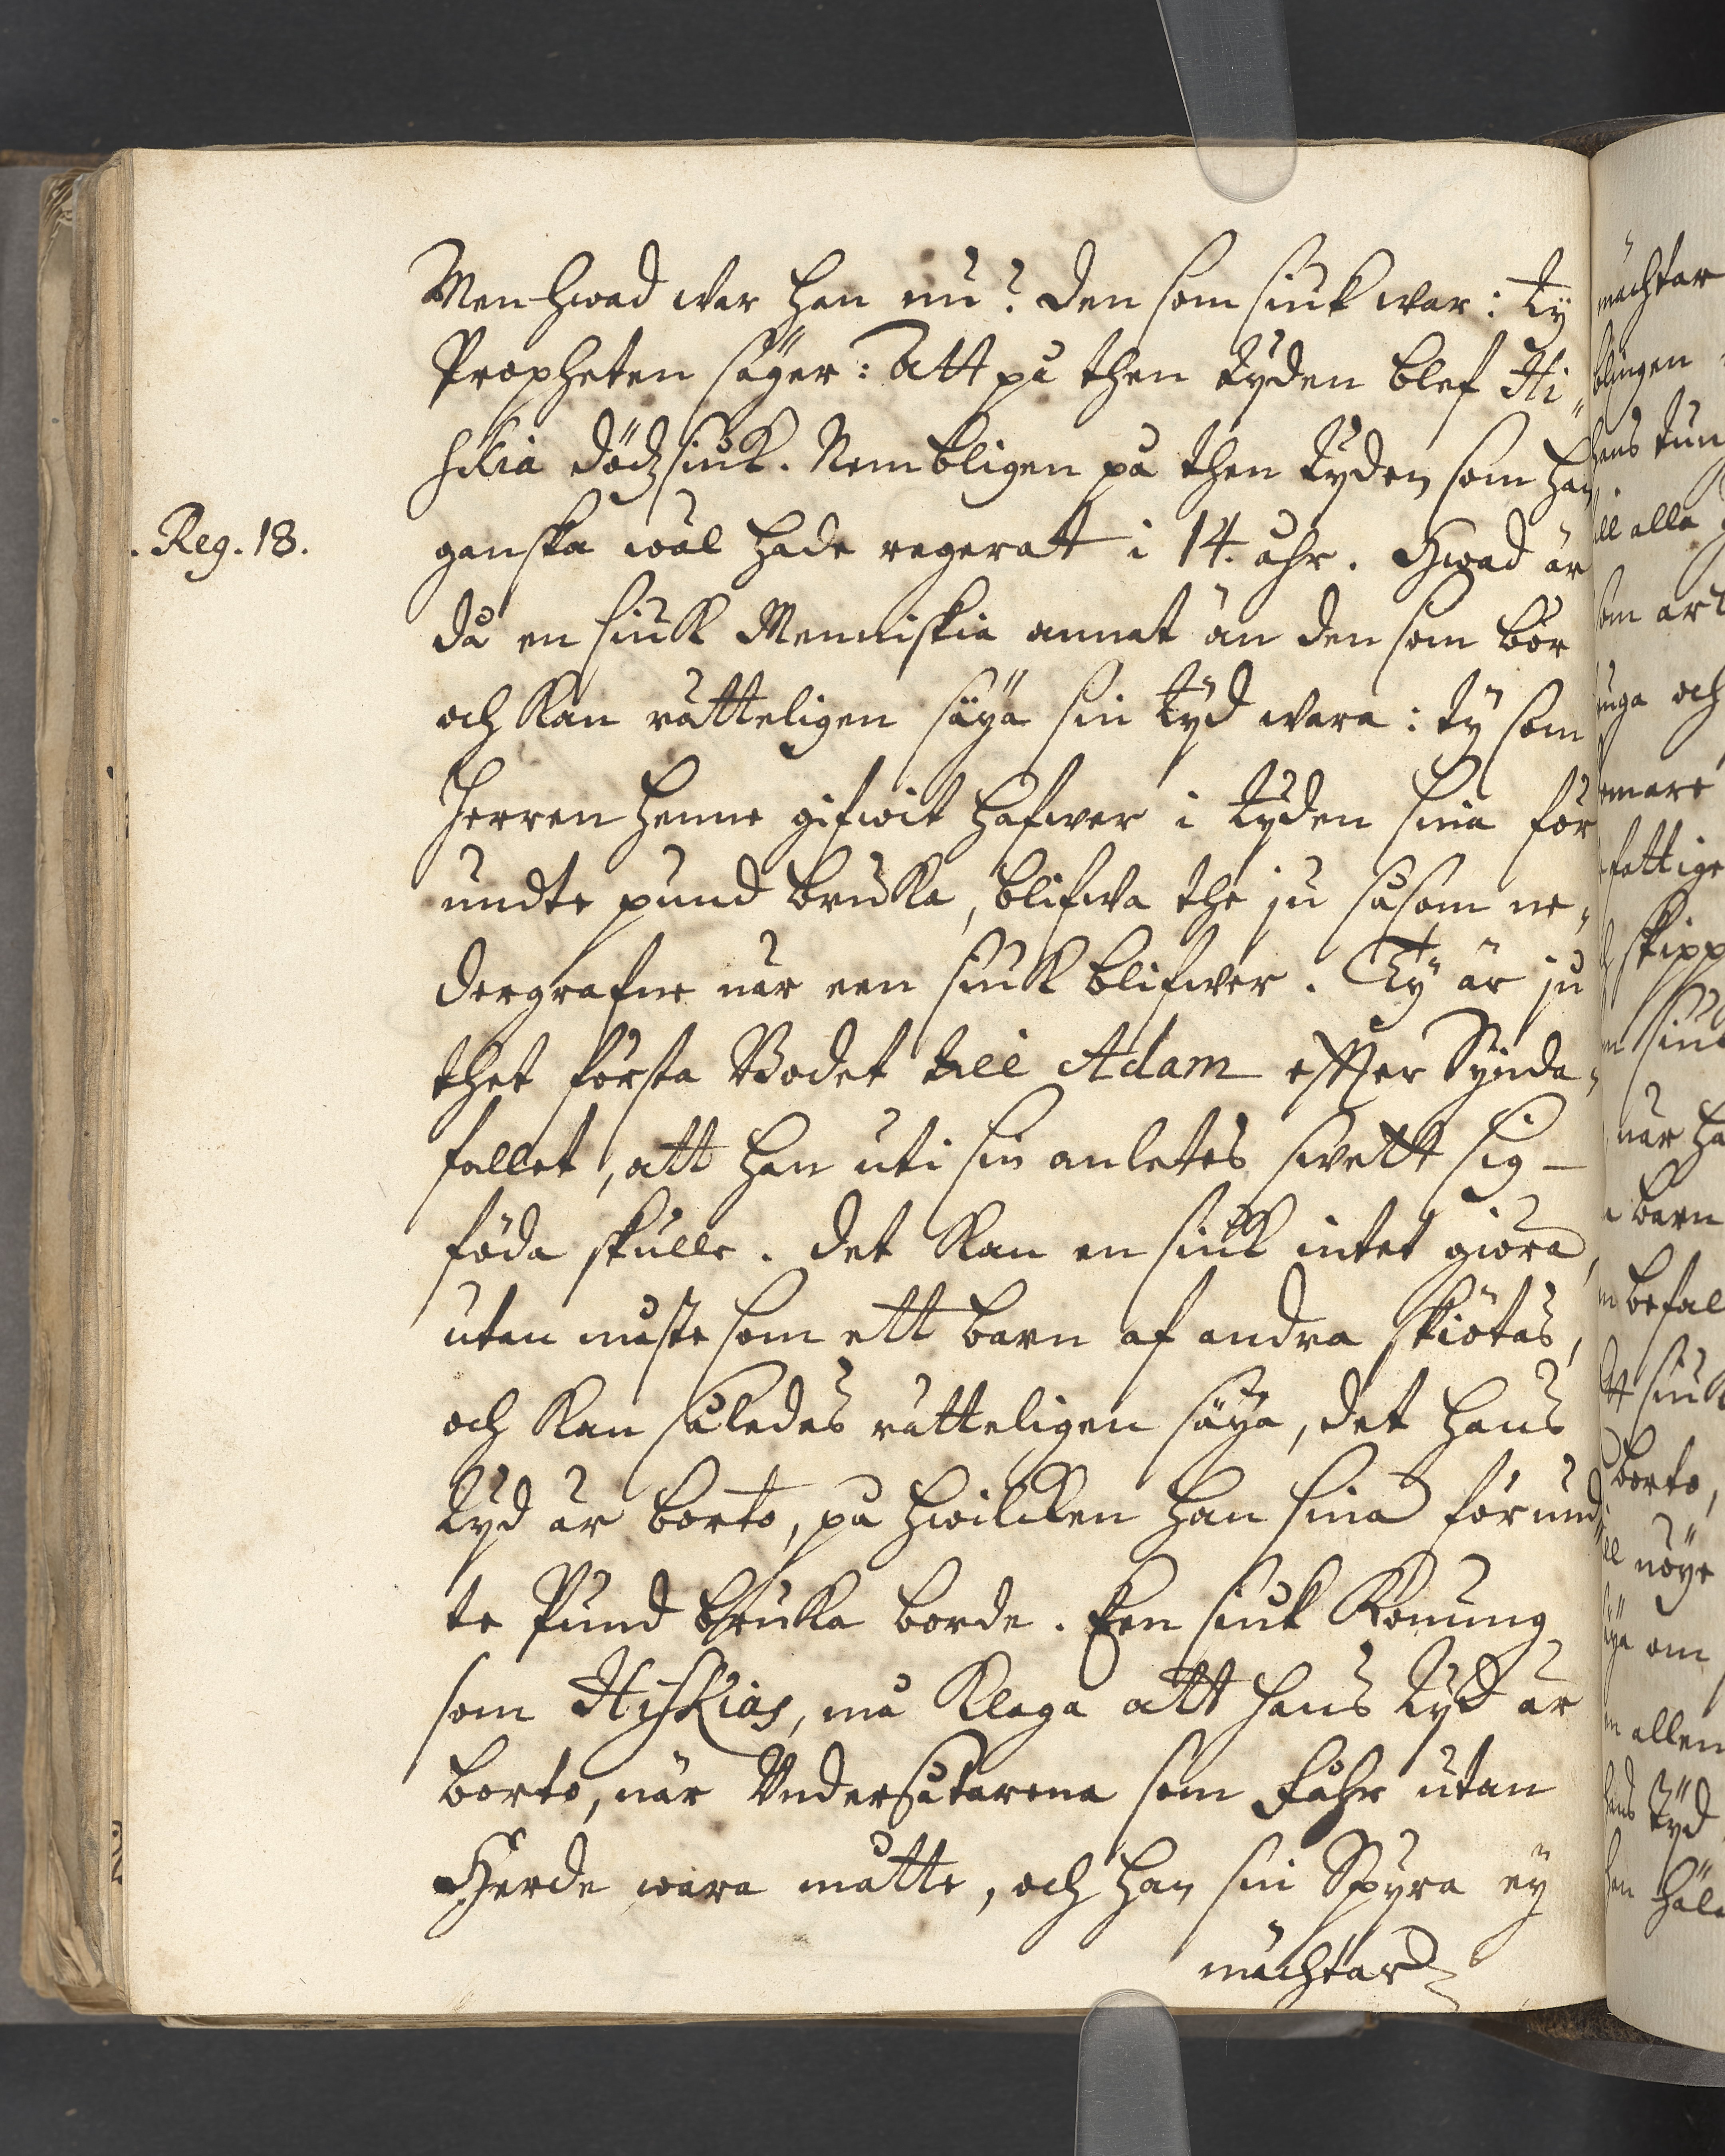 Men hwad war han nu? Den som siuk war: ty
Propheten säger: Att på then tyden blef Hi„
skia dödzsiuk. Nembligen på then tyden som han
. Reg. 18.
ganska wäl hade regerat i 14. åhr. Hwad är
då en siuk Menniskia annat än den som bör
och kan rätteligen säya sin tyd wara: ty som
Herren henne gifwit hafwer i tyden sina för
undte pund bruka, blifwa the ju såsom ne„
dergrafne när een siuk blifwer. Ty är ju
thet första Bodet till Adam effter Synda„
fallet, att han uti sin anletes swett sig
föda skulle. Det kan en siuk intet giöra,
utan måste som ett barn af andra skiötas,
och kan således rätteligen säya, det hans
tyd är borto, på hwilcken han sina förund„
te Pund bruka borde. Een siuk Konung
som Hiskias, må klaga att hans tyd är
borto, när Undersåtarena som Fåhr utan
Herde wara måtte, och han sin Spyra ey
mächtar
mächtar
blingen
hans tun
ill alla
som
och
fattige
skipp
siuk
när ha
barn
befal
siuk
borto,
nöye
om
allen
hans tyd